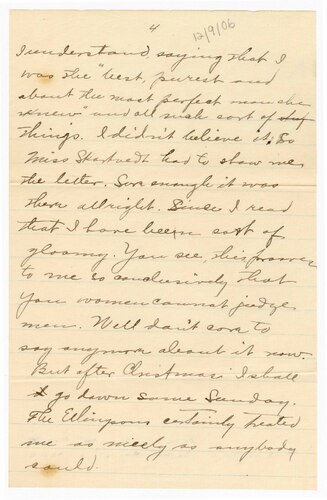 4
12/9/06
I understand, saying that I
was the "best, purest and
about the most perfect man she
knew" and all such sort of
things. I didn't believe it; so
Miss had to show me
the letter. Sure enough it was
there allright. Since I read
that I have been sort of
gloomy. You see, this proves
to me so conclusively that
you women cannot judge
men. Well don't care to
say anymore about it now.
But after Christmas I shall
go down some Sunday.
The certainly treated
me as nicely as anybody
could.